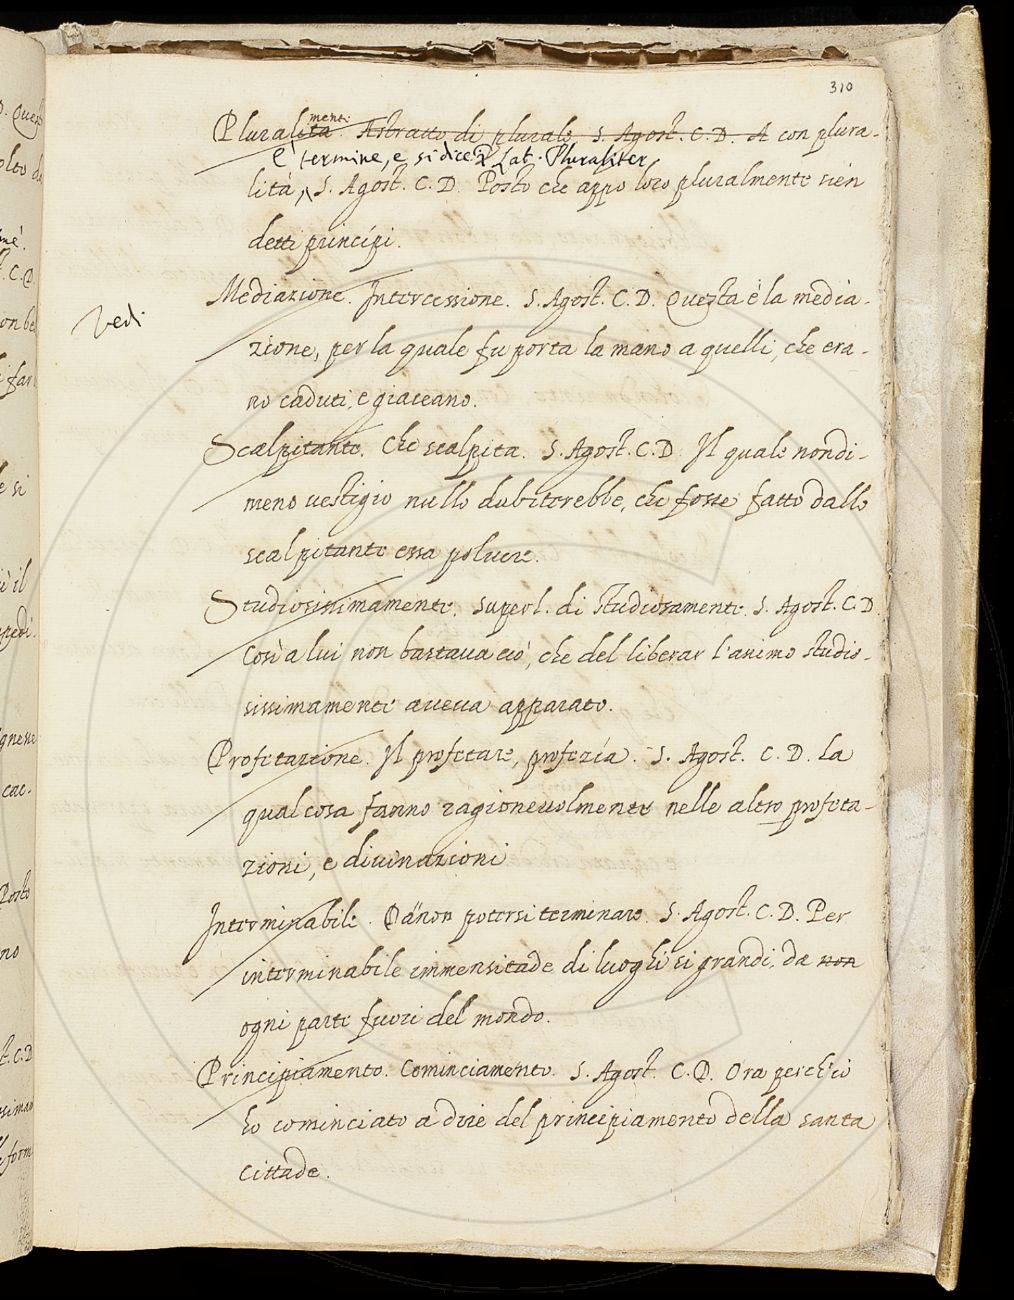 310
Pluralita menti. Astratto di plurale. S. Agost. C. D. A con plura-
È termine, e si dice Lat. Pluraliter
lità, S. Agost. C. D. Posto che appo loro pluralmente sien
detti princípi.
Mediazione. Intercessione. S. Agost. C. D. Questa è la media-
Vedi
zione, per la quale fu porta la mano a quelli, che era-
no caduti, e giaceano.
Scalpitante. Che scalpita. S. Agost. C. D. Il quale nondi-
meno vestigio nullo dubiterebbe, che fosse fatto dallo
scalpitante essa polvere.
Studiosissimamente. Superl. di studiosamente. S. Agost. C. D.
Così a lui non bastava ciò, che del liberar l'animo studio-
sissimamente aveva apparato.
Profetazione. Il profetare, profezía. S. Agost. C. D. La
qual cosa fanno ragionevolmente nelle altre profeta-
zioni, e divinazioni
Interminabile. Da non potersi terminare. S. Agost. C. D. Per
interminabile immensitade di luoghi si grandi, da non
ogni parte fuori del mondo.
Principiamento. Cominciamento. S. Agost. C. D. Ora perch'io
ho cominciato a dire del principiamento della santa
Cittade.